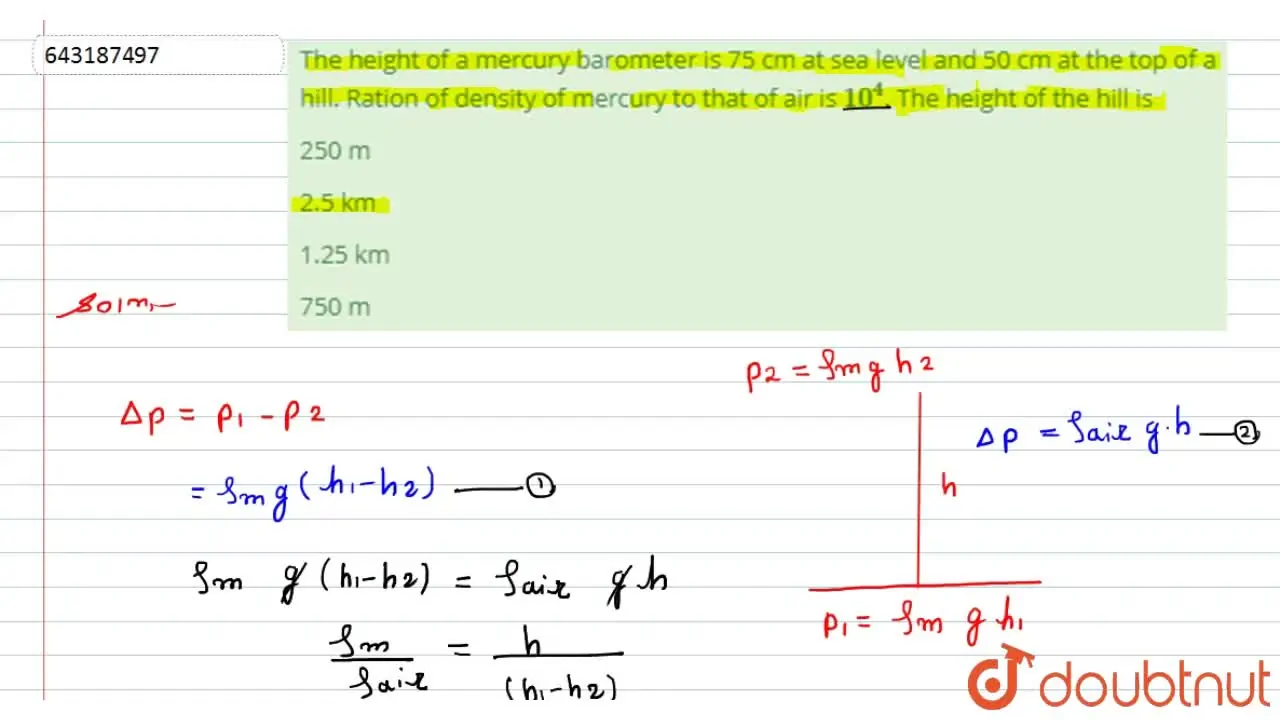 643187497
The height of a mercury barometer is 75 cm at sea level and 50 cm at the top of a
hill. Ration of density of mercury to that of air is 10⁴. The height of the hill is
250 m
2.5 km
1.25 km
750 m
Soln,
P2 = ρm g h2
Δp = P1 - P2
Δp = ρair g.h — ②
= ρm g (h1-h2) — ①
h
ρm g (h1-h2) = ρair g h
P1 = ρm g h1
ρm/ρair = h/(h1-h2)
doubtnut